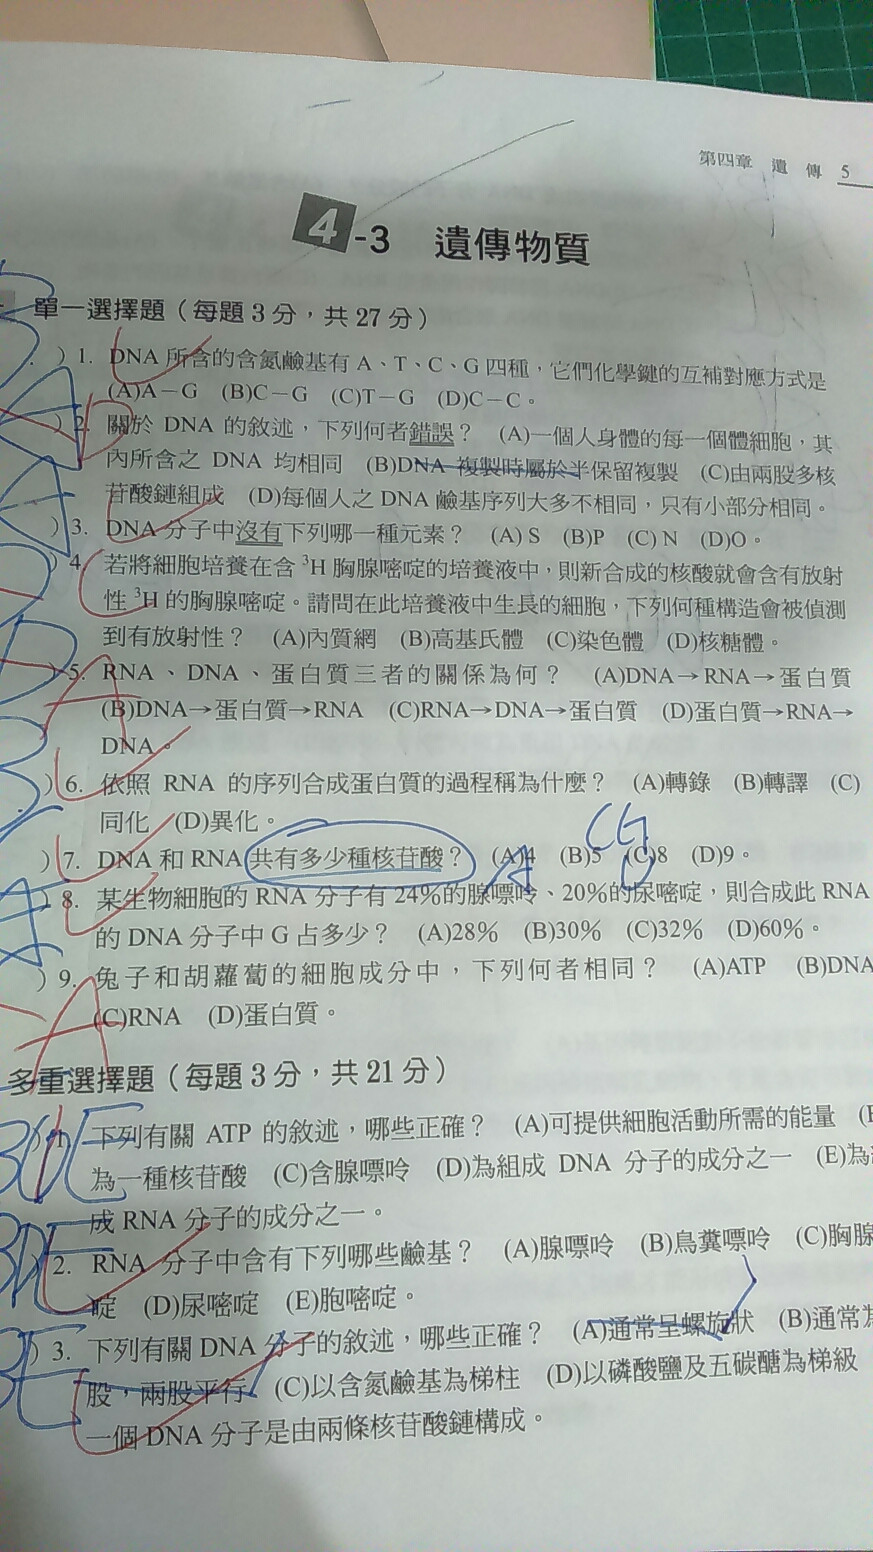 第四章 遺 傳 5
4-3 遺傳物質
單一選擇題（每題3分，共27分）
）1. DNA 所含的含氮鹼基有 A、T、C、G 四種，它們化學鍵的互補對應方式是
(A)A－G (B)C－G (C)T－G (D)C－C。
）2. 關於 DNA 的敘述，下列何者錯誤？ (A)一個人身體的每一個體細胞，其
內所含之 DNA 均相同 (B)DNA 複製時屬於半保留複製 (C)由兩股多核
苷酸鏈組成 (D)每個人之 DNA 鹼基序列大多不相同，只有小部分相同。
）3. DNA 分子中沒有下列哪一種元素？ (A) S (B)P (C) N (D)O。
）4. 若將細胞培養在含 ³H 胸腺嘧啶的培養液中，則新合成的核酸就會含有放射
性 ³H 的胸腺嘧啶。請問在此培養液中生長的細胞，下列何種構造會被偵測
到有放射性？ (A)內質網 (B)高基氏體 (C)染色體 (D)核糖體。
）5. RNA、DNA、蛋白質三者的關係為何？ (A)DNA→RNA→蛋白質
(B)DNA→蛋白質→RNA (C)RNA→DNA→蛋白質 (D)蛋白質→RNA→
DNA。
）6. 依照 RNA 的序列合成蛋白質的過程稱為什麼？ (A)轉錄 (B)轉譯 (C)
同化 (D)異化。
CG
）7. DNA 和 RNA 共有多少種核苷酸？ (A)4 (B)5 (C)8 (D)9。
A U
）8. 某生物細胞的 RNA 分子有 24%的腺嘌呤、20%的尿嘧啶，則合成此 RNA
的 DNA 分子中 G 占多少？ (A)28% (B)30% (C)32% (D)60%。
）9. 兔子和胡蘿蔔的細胞成分中，下列何者相同？ (A)ATP (B)DNA
(C)RNA (D)蛋白質。
多重選擇題（每題3分，共21分）
）1. 下列有關 ATP 的敘述，哪些正確？ (A)可提供細胞活動所需的能量
為一種核苷酸 (C)含腺嘌呤 (D)為組成 DNA 分子的成分之一 (E)為
成 RNA 分子的成分之一。
）2. RNA 分子中含有下列哪些鹼基？ (A)腺嘌呤 (B)鳥糞嘌呤 (C)胸腺
嘧啶 (D)尿嘧啶 (E)胞嘧啶。
）3. 下列有關 DNA 分子的敘述，哪些正確？ (A)通常呈螺旋狀 (B)通常
股，兩股平行 (C)以含氮鹼基為梯柱 (D)以磷酸鹽及五碳醣為梯級
一個 DNA 分子是由兩條核苷酸鏈構成。